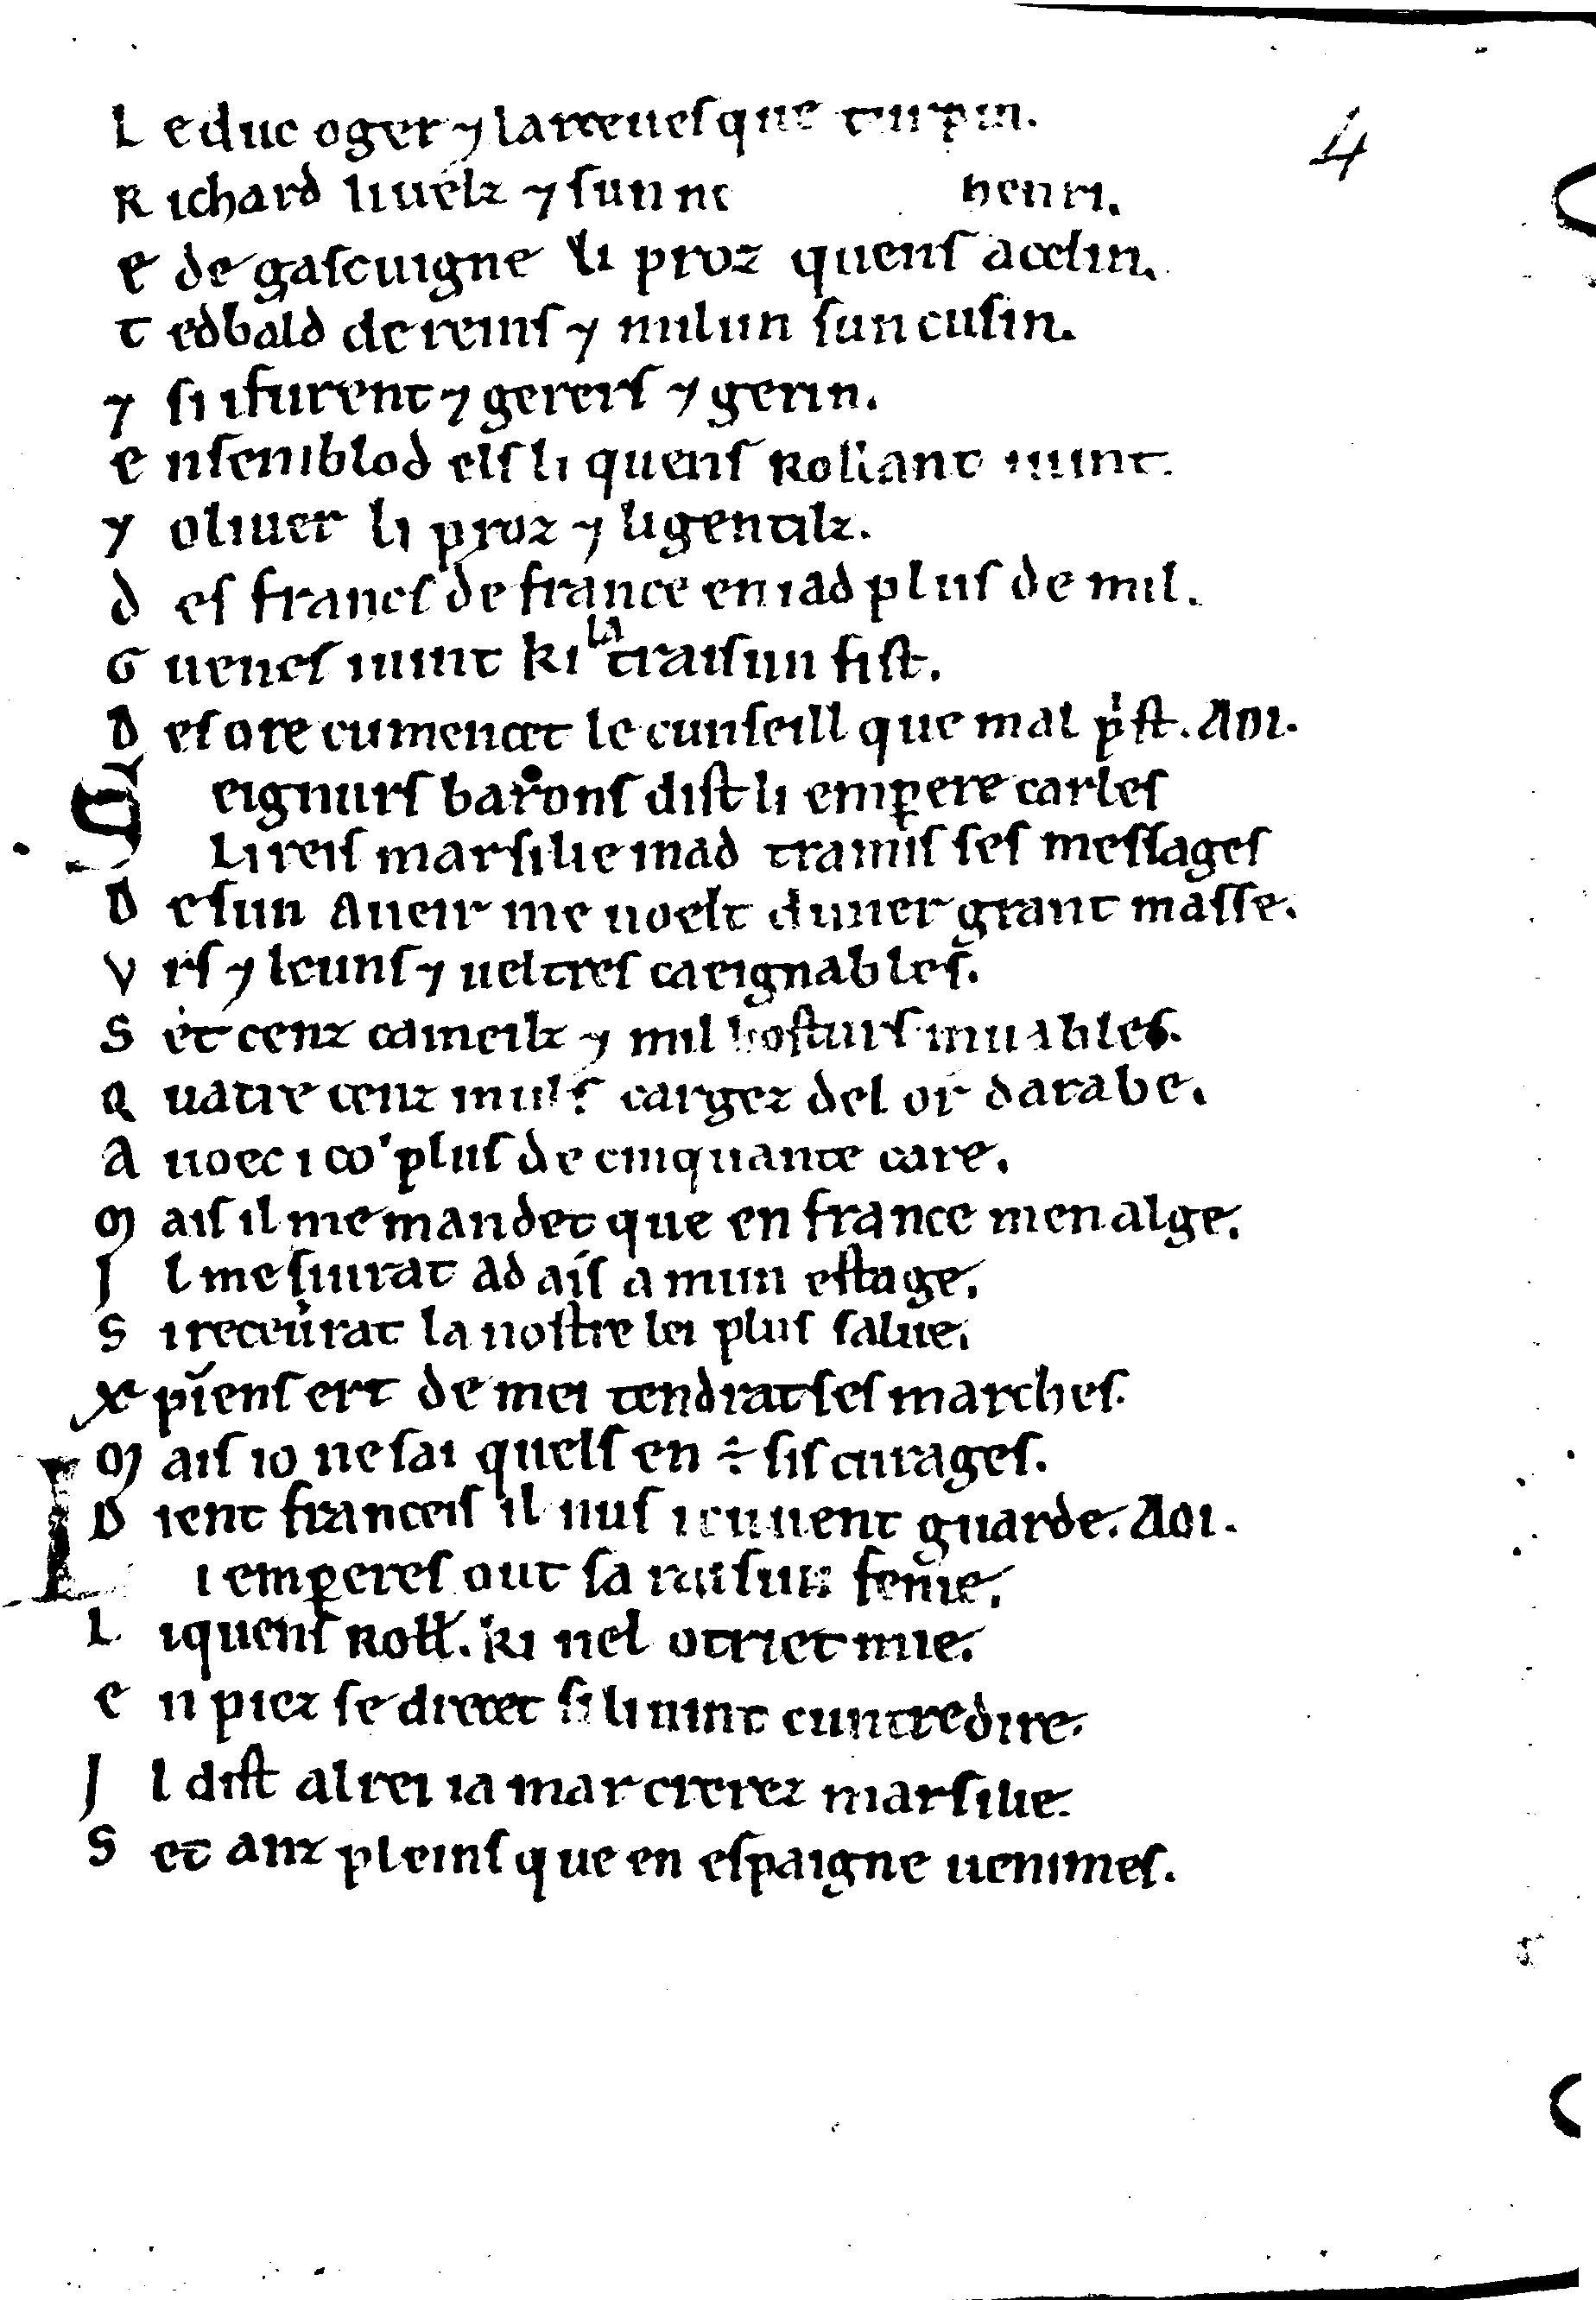 L e duc oger ⁊ larceuesque turpin.
4
R ichard li uelz ⁊ sun henri.
e de gascuigne li proz quens acelin.
t edbald de reins ⁊ milun sun cusin.
⁊ si i furent ⁊ gerers ⁊ gerin.
e nsembl od els li quens Rollant i uint.
⁊ oliuer li proz ⁊ li gentilz.
d es francs de france en i ad plus de mil.
G uenes i uint ki la traisun fist.
D es ore cumencet le cunseill que mal p̍st. Aoi.
S eignurs barons dist li emꝑere carles
Li reis marsilie mad tramis ses messages
D e sun aueir me uoelt duner grant masse.
V rs ⁊ leuns ⁊ ueltres caeignables.
S et cenz cameilz ⁊ mil hosturs muables.
Q uatre cenz muls cargez del or darabe.
A uoec ico plus de cinquante care.
M ais il me mandet que en france men alge.
I l me siurat ad ais a mun estage.
S i receurat la nostre lei plus salue.
X p̄iens ert de mei tendrat ses marches.
M ais io ne sai quels en ÷ sis curages.
D ient franceis il nus i cuuent guarde. Aoi.
L i emꝑeres out sa raisun fenie.
L i quens Roll̄. ki nel otriet mie.
e n piez se drecet si li uint cuntredire.
I l dist al rei ia mar crerez marsilie.
S et anz pleins que en espaigne uenimes.